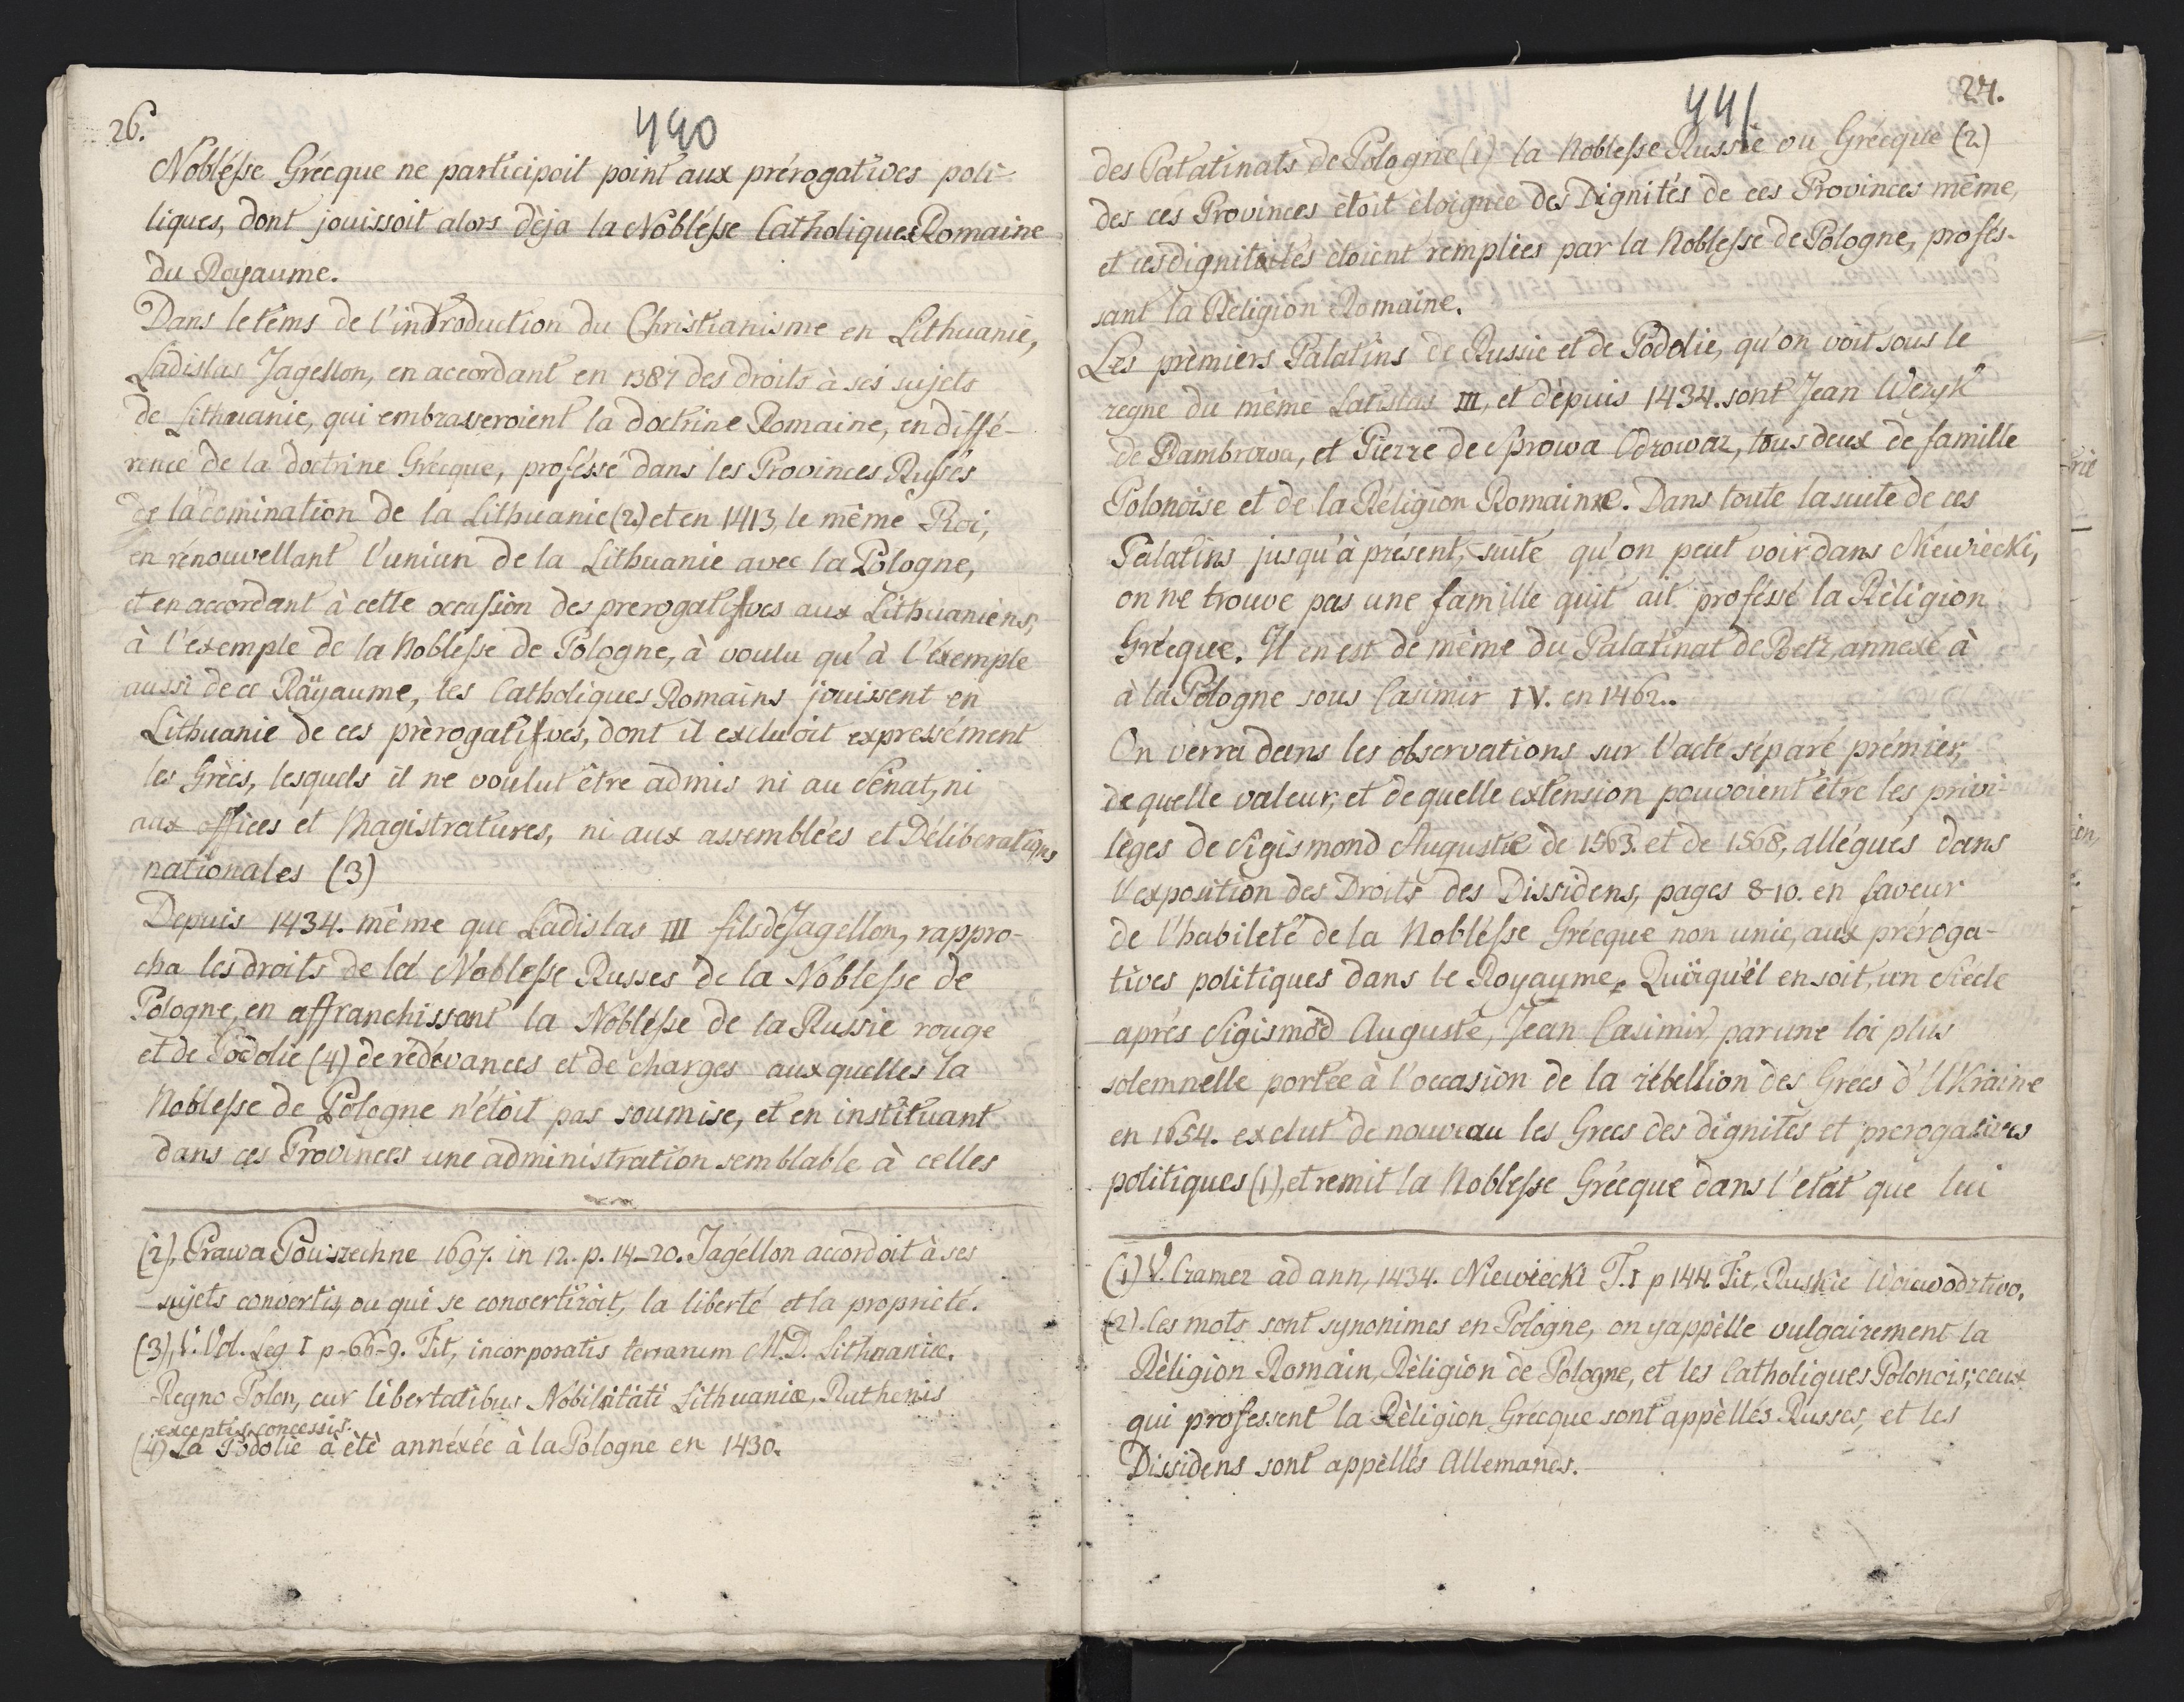 26.
440
Noblésse Grécque ne participoit point aux prérogatives poli-
liques, dont jouissoit alors déja la Noblésse Catholiques Romaine
du Royaume.
Dans le têms de l'introduction du Christianisme en Lithuanie,
Ladislas Jagellon, en accordant en 1387 des droits à ses sujets
de Lithuanie, qui embrasseroient la doctrine Romaine, en diffé-
rence de la doctrine Grécque, proféssé dans les Provinces Russes
de la domination de la Lithuanie (2) et en 1413 le même Roi,
en rénouvellant l'uniun de la Lithuanie avec la Pologne,
et en accordant à cette occasion des prerogatives aux Lithuaniens,
à l'éxemple de la Noblesse de Pologne, à voulu qu'à l'éxemple
aussi de ce Räyaume, les Catholiques Romains jouissent en
Lithuanie de ces prèrogatives, dont il excluoit expressément
les Grècs, lesquels il ne voulut être admis ni au Sénat, ni
aux offices et Magistratures, ni aux assemblées et Délibérations
nationales (3)
Depuis 1434. même que Ladislas III fils de Jagellon, rappro-
cha les droits de la Noblesse Russes de la Noblesse de
Pologne, en affranchissant la Noblésse de la Russie rouge
et de Podolie (4) de rédévances et de charges auxquelles la
Noblesse de Pologne n'étoit pas soumise, et en instituant
dans ces Provinces une administration semblable à celles
(2). Prawa Powszechne 1697. in 12. p. 14-20. Jagéllon accordoit à ses
sujets convertis, ou qui se convertiroit, la liberté et la proprieté.
(3), V. Vol. Leg I p-66-9. Tit, incorporatis terrarum M.D. Lithuaniæ.
Regno Polon, cur libertatibus Nobilitati Lithuaniæ, Ruthenis
exceptis, concessis.
(4) La Podolie à été annéxée à la Pologne en 1430.
441
27.
des Patatinats de Pologne (1) la Noblesse Russie ou Grécque (2)
des ces Provinces étoit éloignée des Dignités de ces Provinces même,
et ces dignités étoient remplies par la Noblesse de Pologne, profés-
sant la Réligion Romaine.
Les prèmiers Palatins de Russie et de Podolie, qu'on voit sous le
regne du même Latislas III, et dépuis 1434. sont Jean Wezyk
de Dambrowa, et Pierre de Sprowa Odrowaz, tous deux de famille
Polonoise et de la Réligion Romaine. Dans toute la suite de ces
Palatins jusqu'à présent, suite qu'on peut voir dans Niewiecki,
on ne trouve pas une famille quit ait proféssé la Rèligion
Grécque. Il en est de même du Palatinat de Betz, annexé à
à la Pologne sous Casimir IV. en 1462..
On verra dans les observations sur l'acte séparé prémier,
de quelle valeur, et de quelle extension pouvoient être les privi-
léges de Sigismond Auguste de 1563. et de 1568, allégués dans
l'exposition des Droits des Dissidens, pages 8-10. en faveur
de l'habileté de la Noblésse Grécque non unie, aux préroga-
tives politiques dans le Royayme. Quöiqu'il en soit, un siécle
aprés Sigismod Auguste, Jean Casimir, par une loi plus
solemnelle portée à l'occasion de la rébellion des Grecs d'Ukraine
en 1654. exclut de nouveau les Grecs des dignités et prerogatives
politiques (1), et remit la Noblesse Grécque dans l'état que lui
(1) V. Cramer ad ann, 1434. Niewiecki T. I p 144. Tit, Ruskie Woiewodztwo.
(2). les mots sont synonimes en Pologne, on y appèlle vulgairement la
Rèligion Romain, Rèligion de Pologne, et les Catholiques Polonois; ceux
qui professent la Rèligion Grecque sont appèllés Russes, et les
Dissidens sont appèllés Allemands.